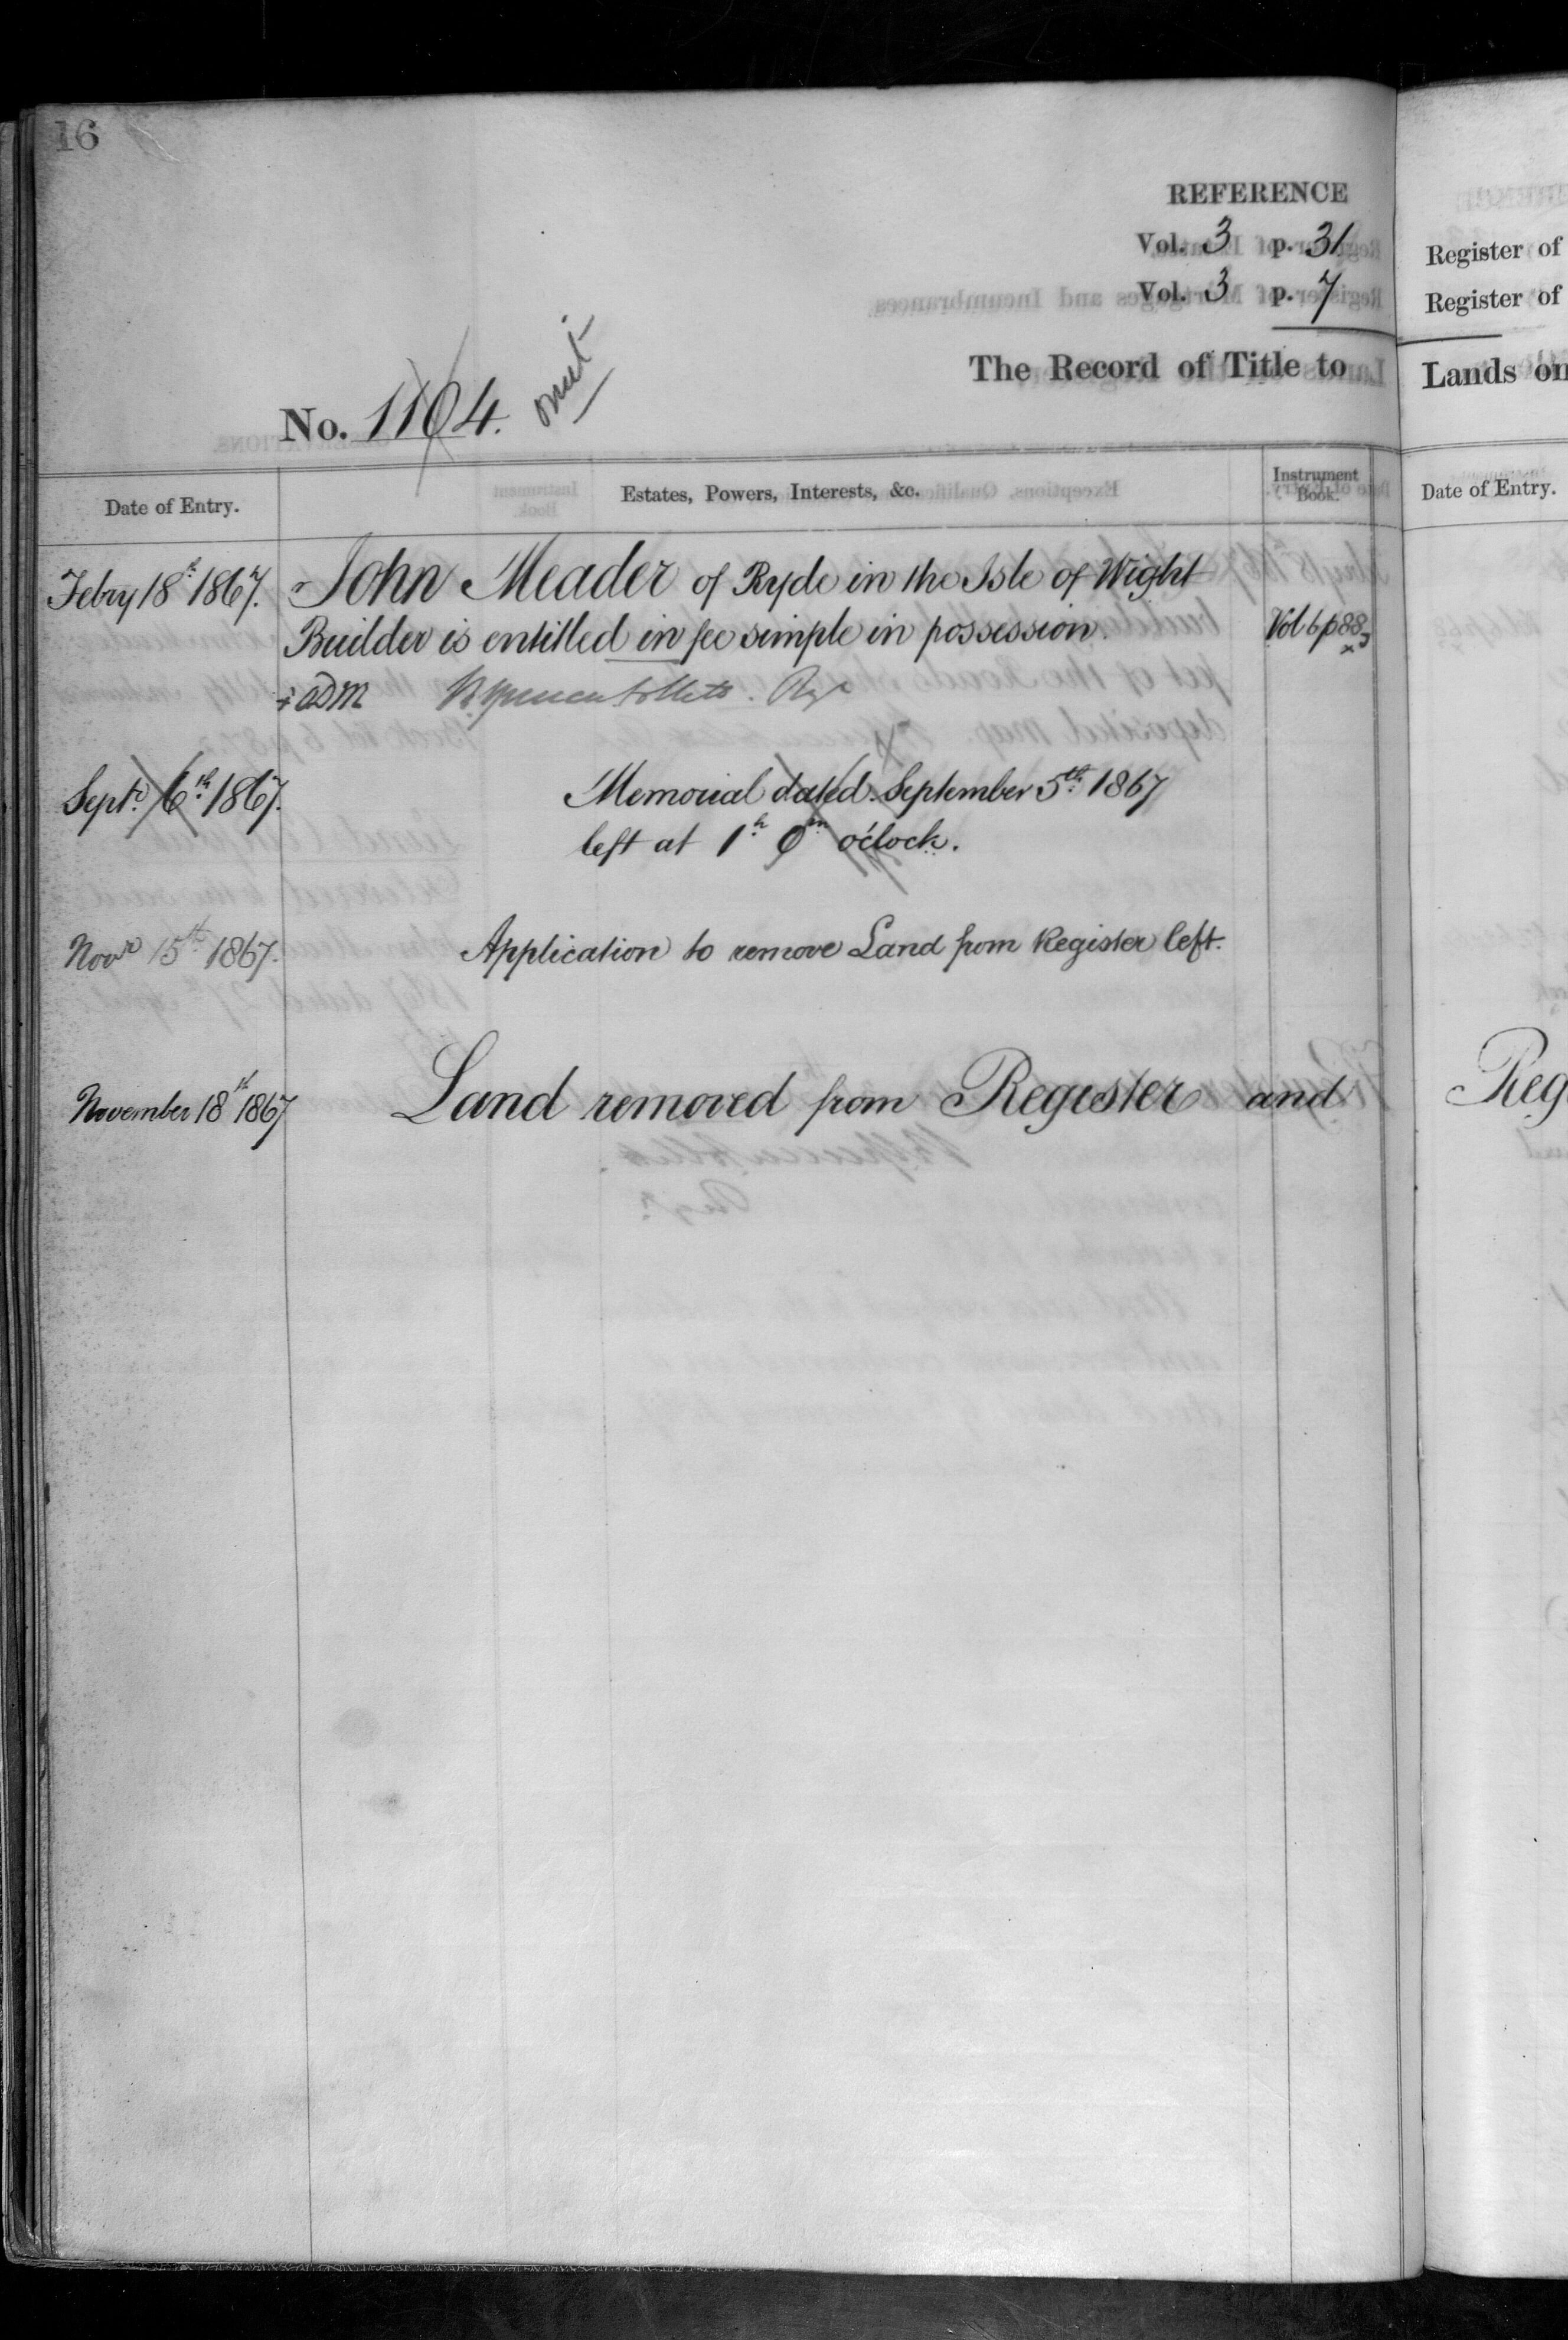 16
REFERENCE
Vol. 3 p. 31
Vol. 3 p. 7
The Record of Title to
No. 1104. omit
Date of Entry. Estates, Powers, Interests, &c. Instrument Book.
Febry 18th 1867. John Meader of Ryde in the Isle of Wight
Builder is entitled in fee simple in possession. Vol 6 p 883
Sepr. 6th 1867. Memorial dated September 5th 1867
left at 1h 0m o'clock.
Novr 15th 1867. Application to remove Land from Register left.
November 18th 1867 Land removed from Register and
Register of
Register of
Lands on
Date of Entry.
Reg